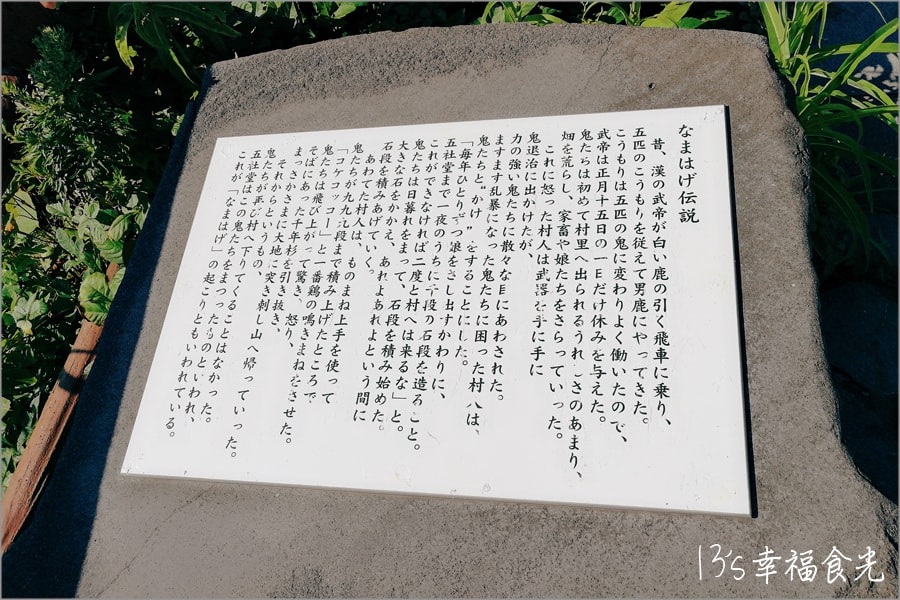 なまはげ伝説
昔、漢の武帝が白い鹿の引く飛車に乗り、
五匹のこうもりを従えて男鹿にやってきた。
こうもりは五匹の鬼に変わりよく働いたので、
武帝は正月十五日の一日だけ休みを与えた。
鬼たちは初めて村里へ出られるうれしさのあまり、
畑を荒らし、家畜や娘たちをさらっていった。
これに怒った村人は武器を手に手に
鬼退治に出かけたが、
力の強い鬼たちに散々な目にあわされた。
ますます乱暴になった鬼たちに困った村人は、
鬼たちと“かけ”をすることにした。
「毎年ひとりずつ娘をさし出すかわりに、
五社堂まで一夜のうちに千段の石段を造ること。
これができなければ二度と村へは来るな」と。
鬼たちは日暮れをまって、石段を積み始めた。
大きな石をかかえ、あれよあれよという間に
石段を積みあげていく。
あわてた村人は、ものまね上手を使って
鬼たちが九九九段まで積み上げたところで
「コケコッコー」と一番鶏の鳴きまねをさせた。
鬼たちは飛び上がって驚き、怒り、
そばにあった千年杉を引き抜き、
まっさかさまに大地に突き刺し山へ帰っていった。
それからというもの、
鬼たちが再び村へ下りてくることはなかった。
五社堂はこの鬼たちをまつったものといわれ、
これが「なまはげ」の起こりともいわれている。
13's幸福食光